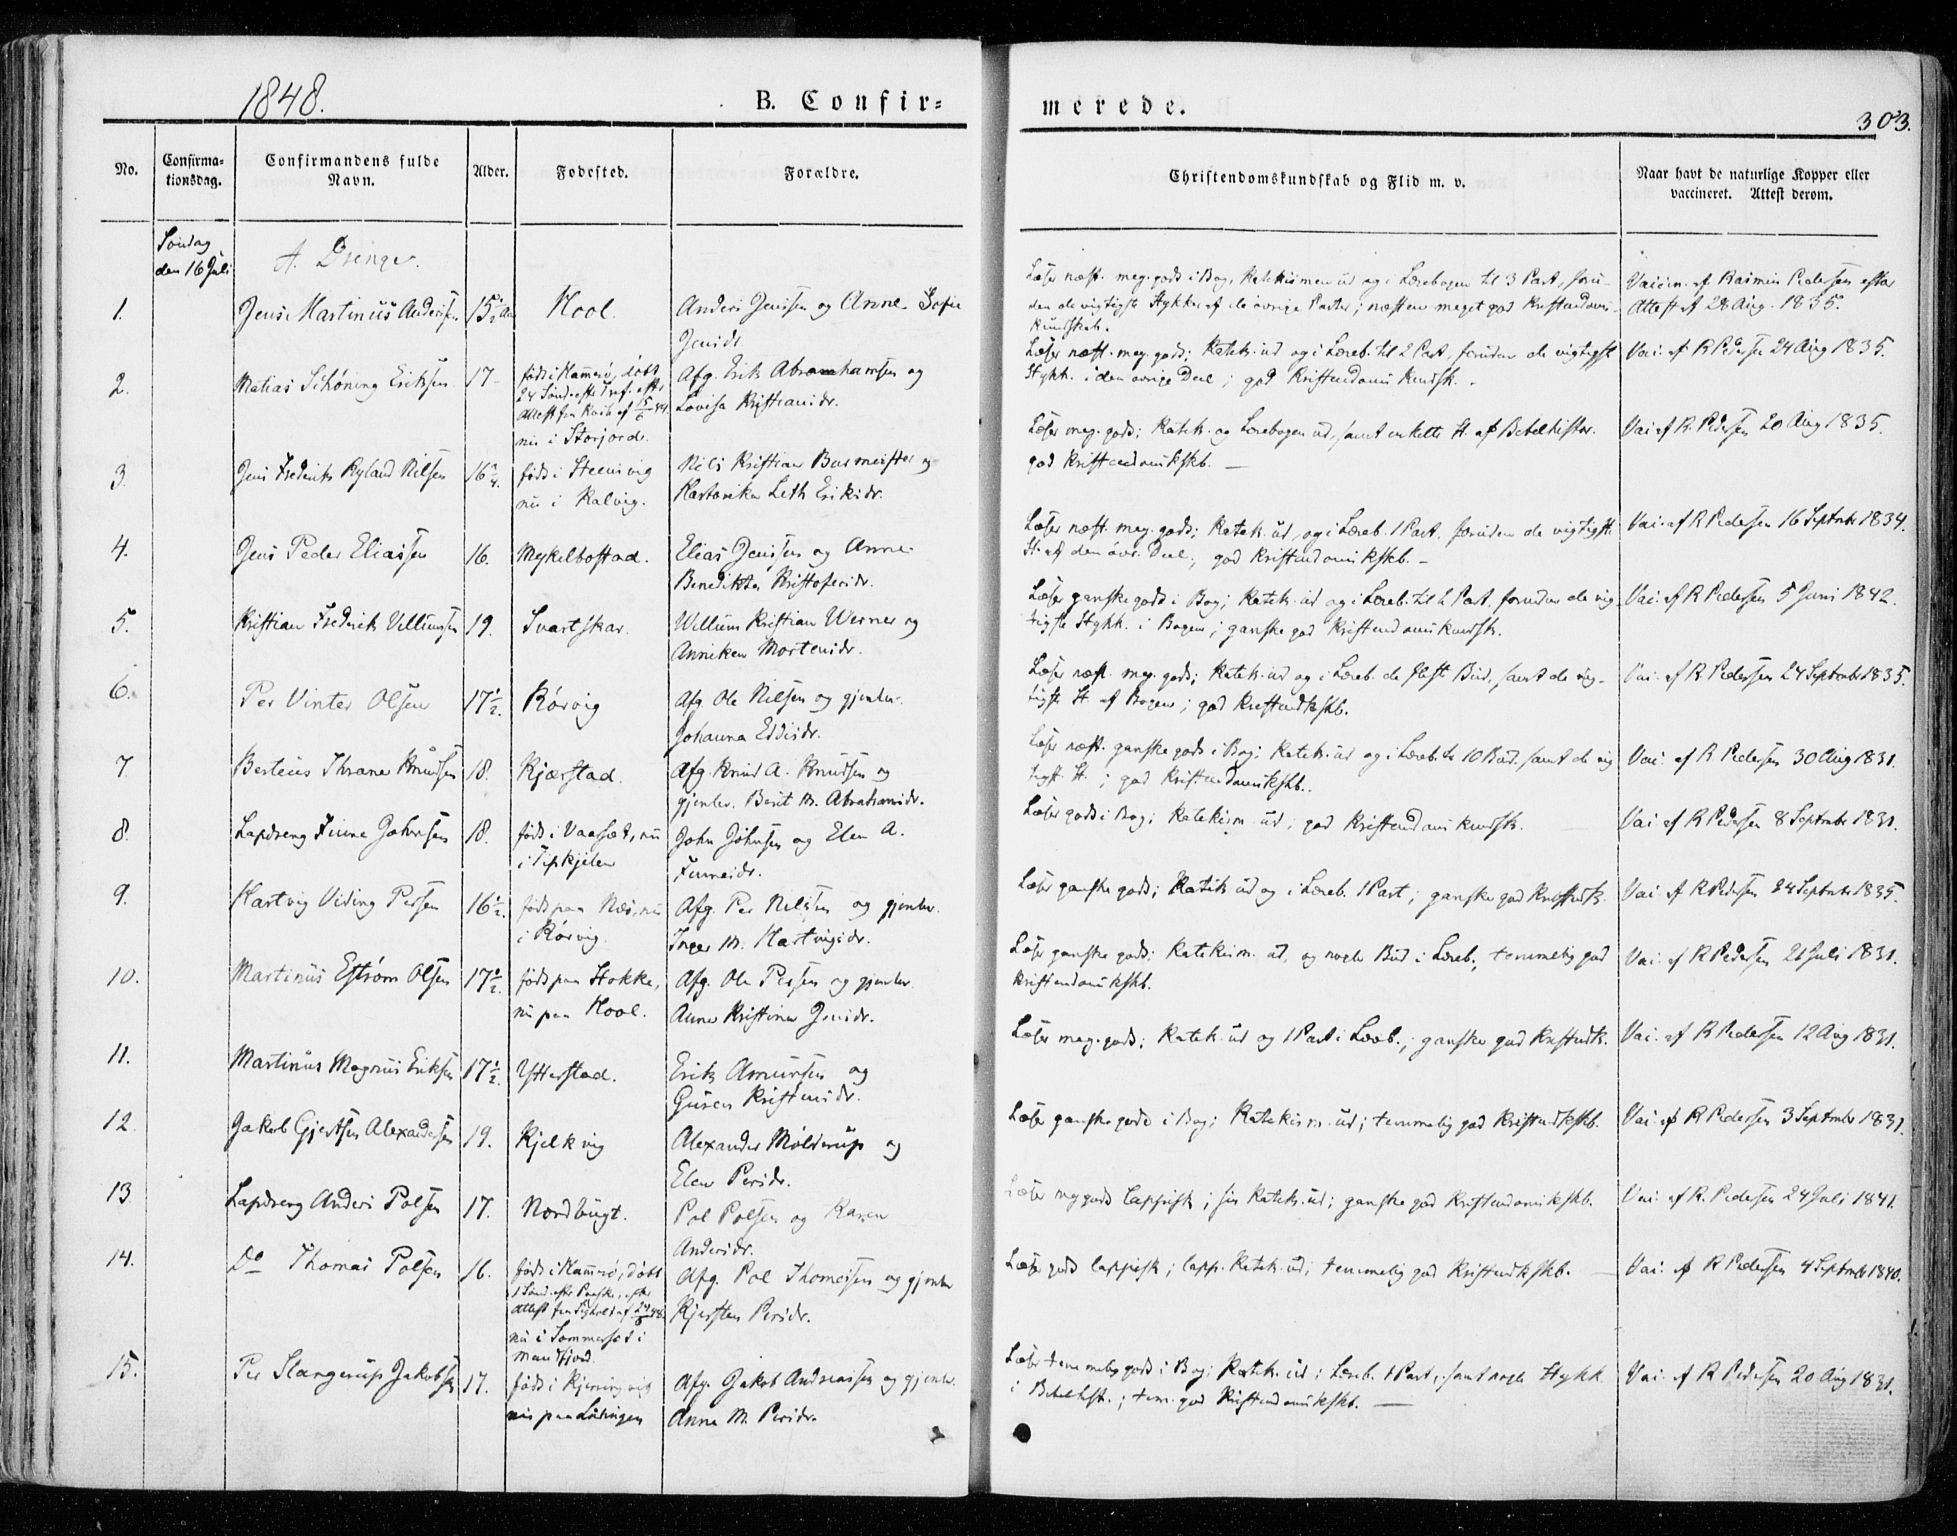 1848.
B. Confir=
merede.
303.
No.
Confirma-
tionsdag.
Confirmandens fulde
Navn.
Alder.
Fodested.
Forældre.
Christendomskundskab og Flid m. v.
Naar havt de naturlige Kopper eller
vaccineret. Attest derom.
Søndag
den 16 Juli
A. Drenge.
1.
Jens Martinus Anders
15½
Hool.
Anders Jenssen og Anne Sofie
Jensdr.
Læser næst. meg. godt i Bog, Katekismen ud og i Lærebogen til 3 Part, foru-
den de vigtigste Stykker af de øvrige Parter; næsten meget god Kristendoms-
kundskab.
Vaccin. af Rasmus Pedersen efter
Attest af 28 Aug. 1835.
2.
Matias Schöning Eriksen
17
født i Hammerø, døbt
24 Sønd. efter Tref. efter
Attest fra
nu i Storjord.
Afg. Erik Abramhamsen og
Lovisa Kristiansdr.
Læser næst. meg. godt; Katek. ud og i Læreb. til 2 Part, foruden de vigtigste
Stykk. i den øvrige Deel; god Kristendoms Kundsk.
Vac. af R Pedersen 24 Aug 1835.
3.
Jens Frederik Ryland Nilsen
16¼
født i Steensvig
nu i Kalvig.
Nils Kristian Burmeister og
Hartvika Leth Eriksdr.
Læser meg. godt; Katek. og Lærebogen ud, samt enkelte St. af Bibelhistor.
god Kristendomskskb.
Vac af R. Pedersen 20 Aug 1835.
4.
Jens Peder Eliassen
16.
Mykelbostad.
Elias Jenssen og Anne
Benedikta Kristofersdr.
Læser næst. meg. godt; Katek. ud, og i Læreb. 1 Part. foruden de vigtigste
St. af den øvr. Deel; god Kristendomskskb.
Vac. af R Pedersen 16 Septmbr 1834.
5.
Kristian Frederik Villumsen
19.
Svartskar.
Willum Kristian Werner og
Anniken Mortensdr.
Læser ganske godt i Bog; Katek. ud og i Læreb. til 2 Part. foruden de vig-
tigste Stykk. i Bogen; ganske god Kristendomskundsk.
Vac. af R Pedersen 5 Juni 1842.
6.
Per Vinter Olsen
17½.
Rørvig
Afg Ole Nilsen og gjenlev.
Johanna Eddisdr.
Læser næst. meg. godt; Katek. ud og i Læreb. de fleste Bud, samt de vig-
tigste St. af Bogen; god Kristendkskb.
Vac. af R Pedersen 24 Septmbr 1835.
7.
Berteus Thrane Knudsen
18.
Kjærstad.
Afg Knud A. Knudsen og
gjenlev. Berit M. Abrahamsdr.
Læser næst. ganske godt i Bog; Katek. ud og i Læreb. de 10 Bud, samt de vig
tigst. St.; god Kristendomskskb.
Vac. af R Pedersen 30 Aug 1831.
8.
Lapdreng Finne Johnsen
18.
født i Vaasæt, nu
i Tipkjelen
John Johnsen og Elen A.
Finnesdr.
Læser godt i Bog; Katekism. ud; god Kristendomskundsk.
Vac af R Pedersen 8 Septmbr 1831.
9.
Hartvig Viding Persen
16½.
født paa Næs, nu
i Rørvig.
Afg. Per Nilsen og gjenlev.
Inger M. Hartvigsdr.
Læser ganske godt; Katek ud og i Læreb. 1 Part; ganske god Kristendsk.
Vac. af R Pedersen 24 Septmbr 1835.
10.
Martinus Estrøm Olsen
17½.
født paa Stokke,
nu paa Hool.
Afg. Ole Persen og gjenlev.
Anne Kristina Jensdr.
Læser ganske godt; Katekism. ud, og nogle Bud i Læreb.; temmelig god
Kristendomskskb.
Vac. af R Pedersen 21 Juli 1831.
11.
Martinus Magnus Eriksen
17½.
Ytterstad.
Erik Amunsen og
Guren Kristensdr.
Læser meg. godt; Katek. ud og 1 Part i Læreb.; ganske god Kristendk.
Vac. af R Pedersen 12 Aug 1831.
12.
Jakob Gjertsen Alexandersen
19.
Kjelkvig
Alexander Molderup og
Elen Persdr.
Læser ganske godt i Bog; Katekism. ud; temmelig god Kristendkskb.
Vac. af R Pedersen 3 Septmbr 1831.
13
Lapdreng Anders Polsen
17.
Nordbugt.
Pol Polsen og Karen
Andersdr.
Læser meg godt lappisk; sin Katek. ud; ganske god Kristendomskskb.
Vac. af R. Pedersen 24 Juli 1841.
14.
Do Thomas Polsen
16.
født i Hammerø, døbt
1 Sønd. efter Paaske, efter
Attest fra
nu i Sommersæt i
Mandfjord.
Afg. Pol Thomessen og gjenlev
Kjersten Persdr.
Læser godt lappisk; lapp. Katek. ud; temmelig god Kristendkskb.
Vac. af R Pedersen 4 Septmbr 1840.
15.
Per Slangerup Jakobsen
17.
født i Kjerringvig
nu paa Lødingen
Afg. Jakob Andreassen og gjenlev.
Anne M. Persdr.
Læser temmelig godt i Bog; Katek. ud; Læreb. 1 Part, samt nogle Stykk
i Bibelhist.; tem. god Kristendomskskb.
Vac. af R Pedersen 20 Aug 1831.